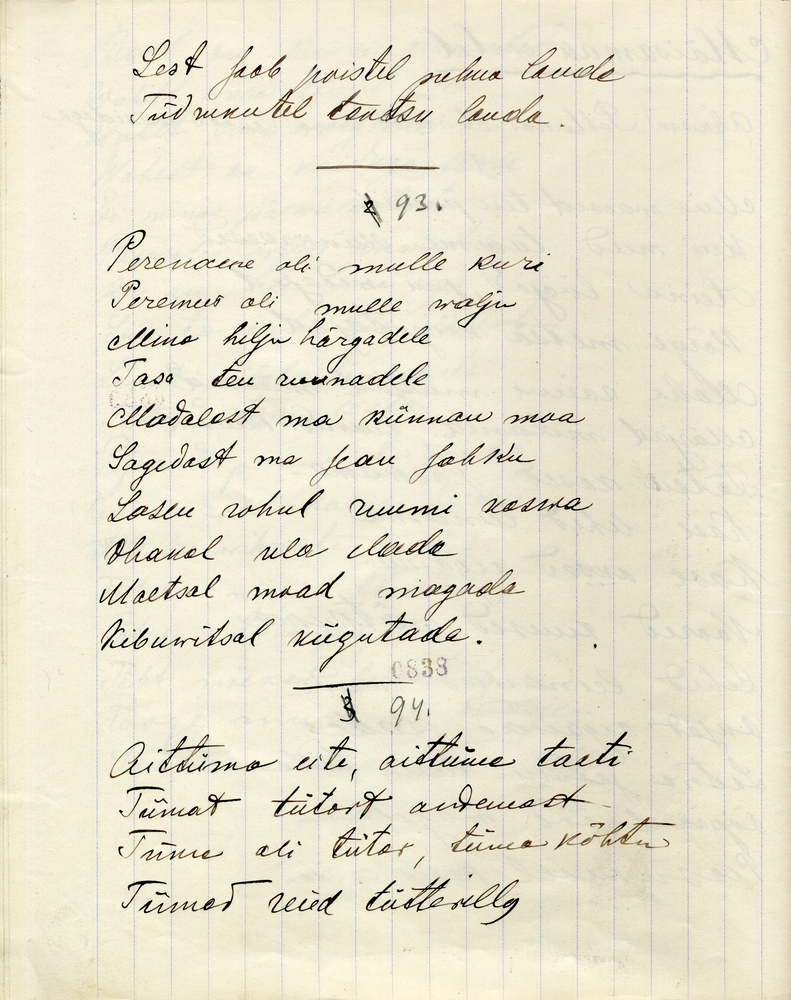 Sest saab poistel pehme lauda
Tüdrukutel tantsu lauda.
93.
Perenaene oli mulle kuri
Peremees oli mulle walju
Mina hilju härgadele
Tasa teu ruunadele
Madalast ma künnan maa
Sagedast ma sean sahku
Lasen rohul ruumi kaswa
Ohakal ula elada
Maetsal maad magada
Kibuwitsal kiigutada.
0838
94.
Aittüma eite, aittüma taati
Tümat tütart andemast
Tüma oli tütar, tüma kõhtu
Tümad reied tütterilly